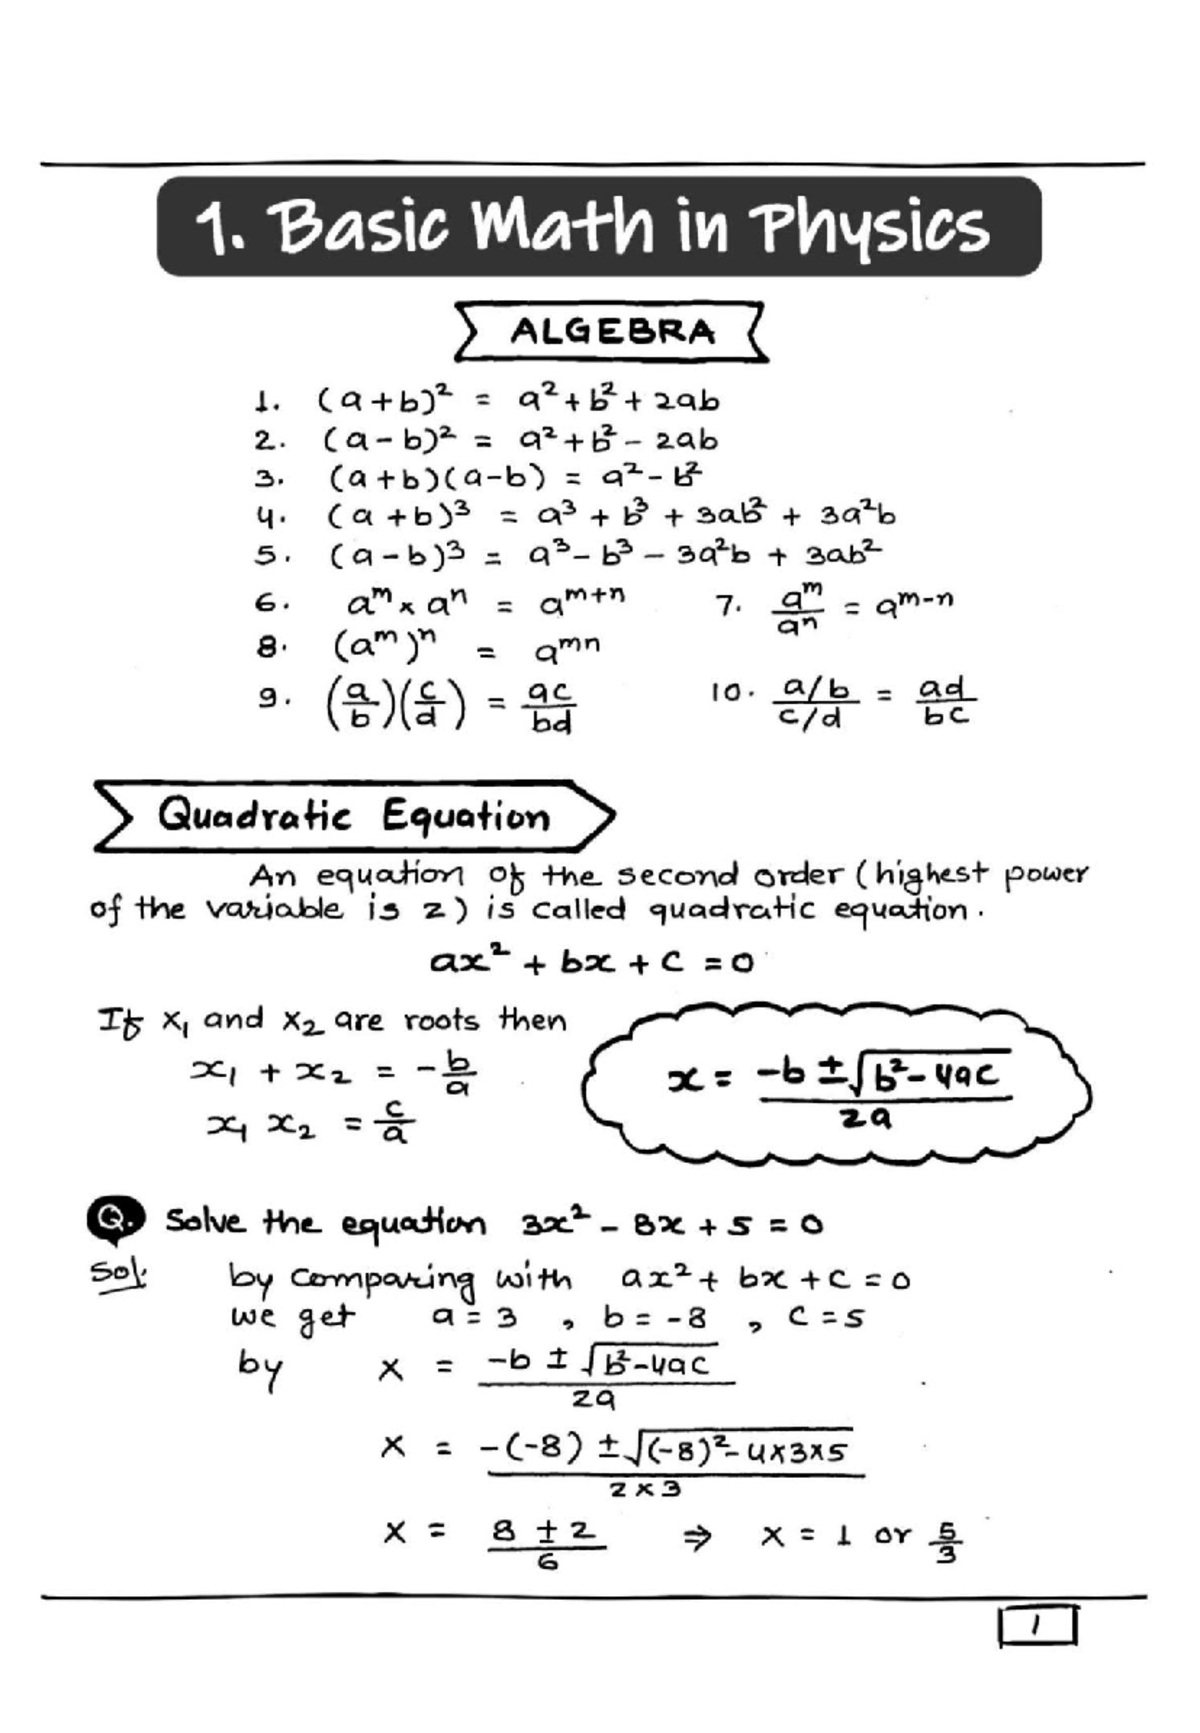 1. Basic Math in Physics
ALGEBRA
1. (a+b)² = a²+b²+2ab
2. (a-b)² = a²+b²-2ab
3. (a+b)(a-b) = a²-b²
4. (a+b)³ = a³ + b³ + 3ab² + 3a²b
5. (a-b)³ = a³-b³-3a²b + 3ab²
6. aᵐ × aⁿ = aᵐ⁺ⁿ 7. aᵐ/aⁿ = aᵐ⁻ⁿ
8. (aᵐ)ⁿ = aᵐⁿ
9. (a/b)(c/d) = ac/bd 10. (a/b)/(c/d) = ad/bc
Quadratic Equation
An equation of the second order (highest power
of the variable is 2) is called quadratic equation.
ax² + bx + c = 0
If x₁ and x₂ are roots then
x₁ + x₂ = -b/a
x₁ x₂ = c/a
x = (-b ± √(b²-4ac))/2a
Q. Solve the equation 3x² - 8x + 5 = 0
Sol. by comparing with ax² + bx + c = 0
we get a = 3 , b = -8 , c = 5
by x = (-b ± √(b²-4ac))/2a
x = (-(-8) ± √((-8)²-4×3×5))/(2×3)
x = (8 ± 2)/6 ⇒ x = 1 or 5/3
1